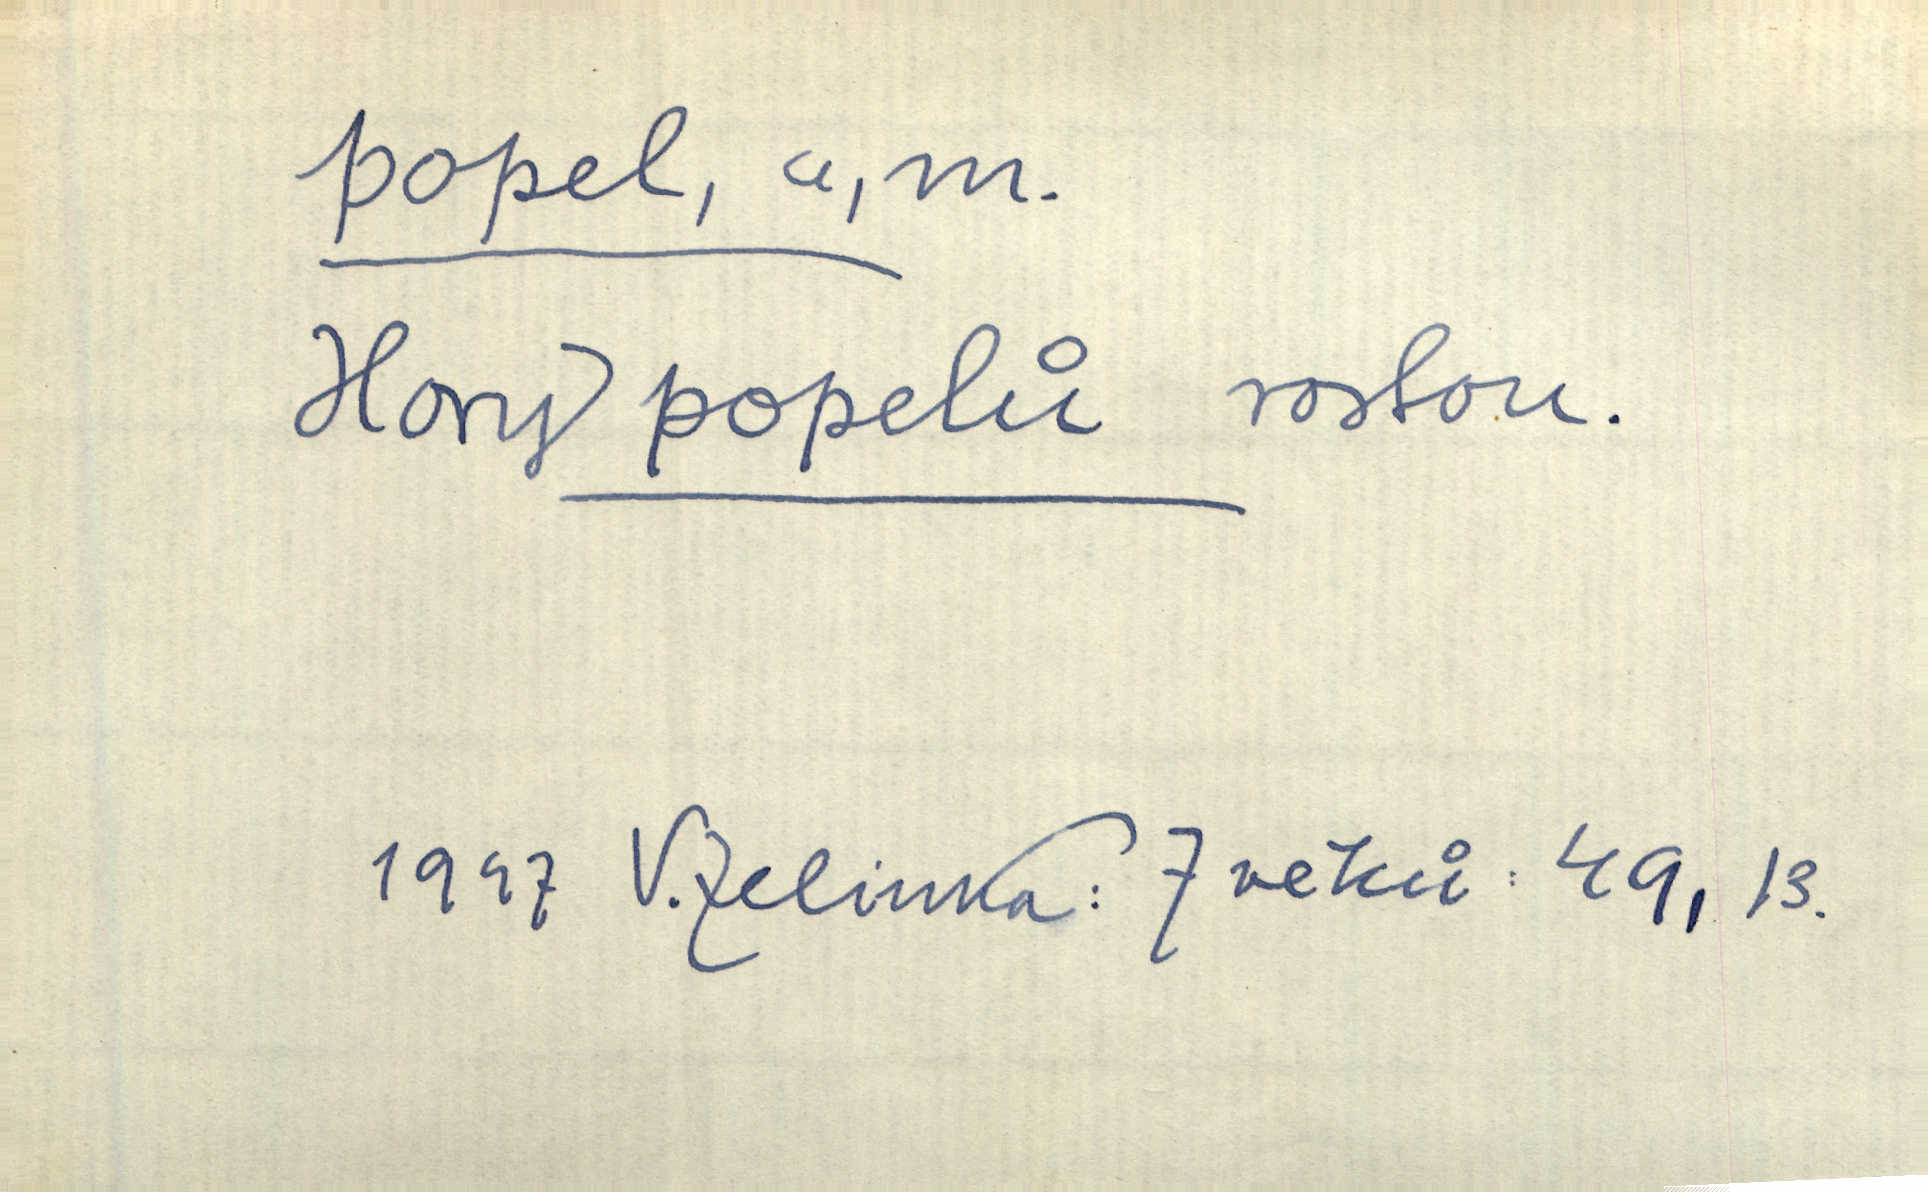 popel, u, m.
Hory popelů rostou.
1947 V. Zelinka: Z věků: 49, 13.